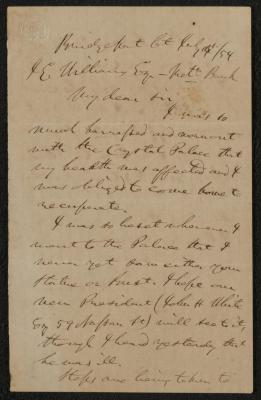 Bridgeport Ct July 1st/54
J E. Williams Esq - Bank
My dear Sir
I was so
much harrassed and wornout
with the Crystal Palace that
my health was affected and I
was obliged to come home to
recuperate.
I was so beset whenever I
went to the Palace that I
never yet saw either your
Statue or bust. I hope our
new President (John H White
Esq 59 Nassau St) will see to it,
though I heard yesterday that
he was ill.
Steps are being taken to